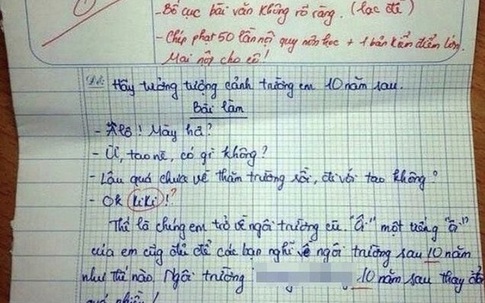 - Bố cục bài văn không rõ ràng. (lạc đề)
- Chép phạt 50 lần nội quy môn học + 1 bản kiểm điểm lớn.
Mai nộp cho cô!
Đề: Hãy tưởng tượng cảnh trường em 10 năm sau.
Bài làm
- Alô! Mày hả?
- Ừ, tao nè, có gì không?
- Lâu quá chưa về thăm trường rồi, đi với tao không?
- Ok kiki !?
Thế là chúng em trở về ngôi trường cũ. "Ầi" một tiếng "ầi"
của em cũng đủ để các bạn nghĩ về ngôi trường sau 10 năm
như thế nào. Ngôi trường 10 năm sau thay đổi
quá nhiều!